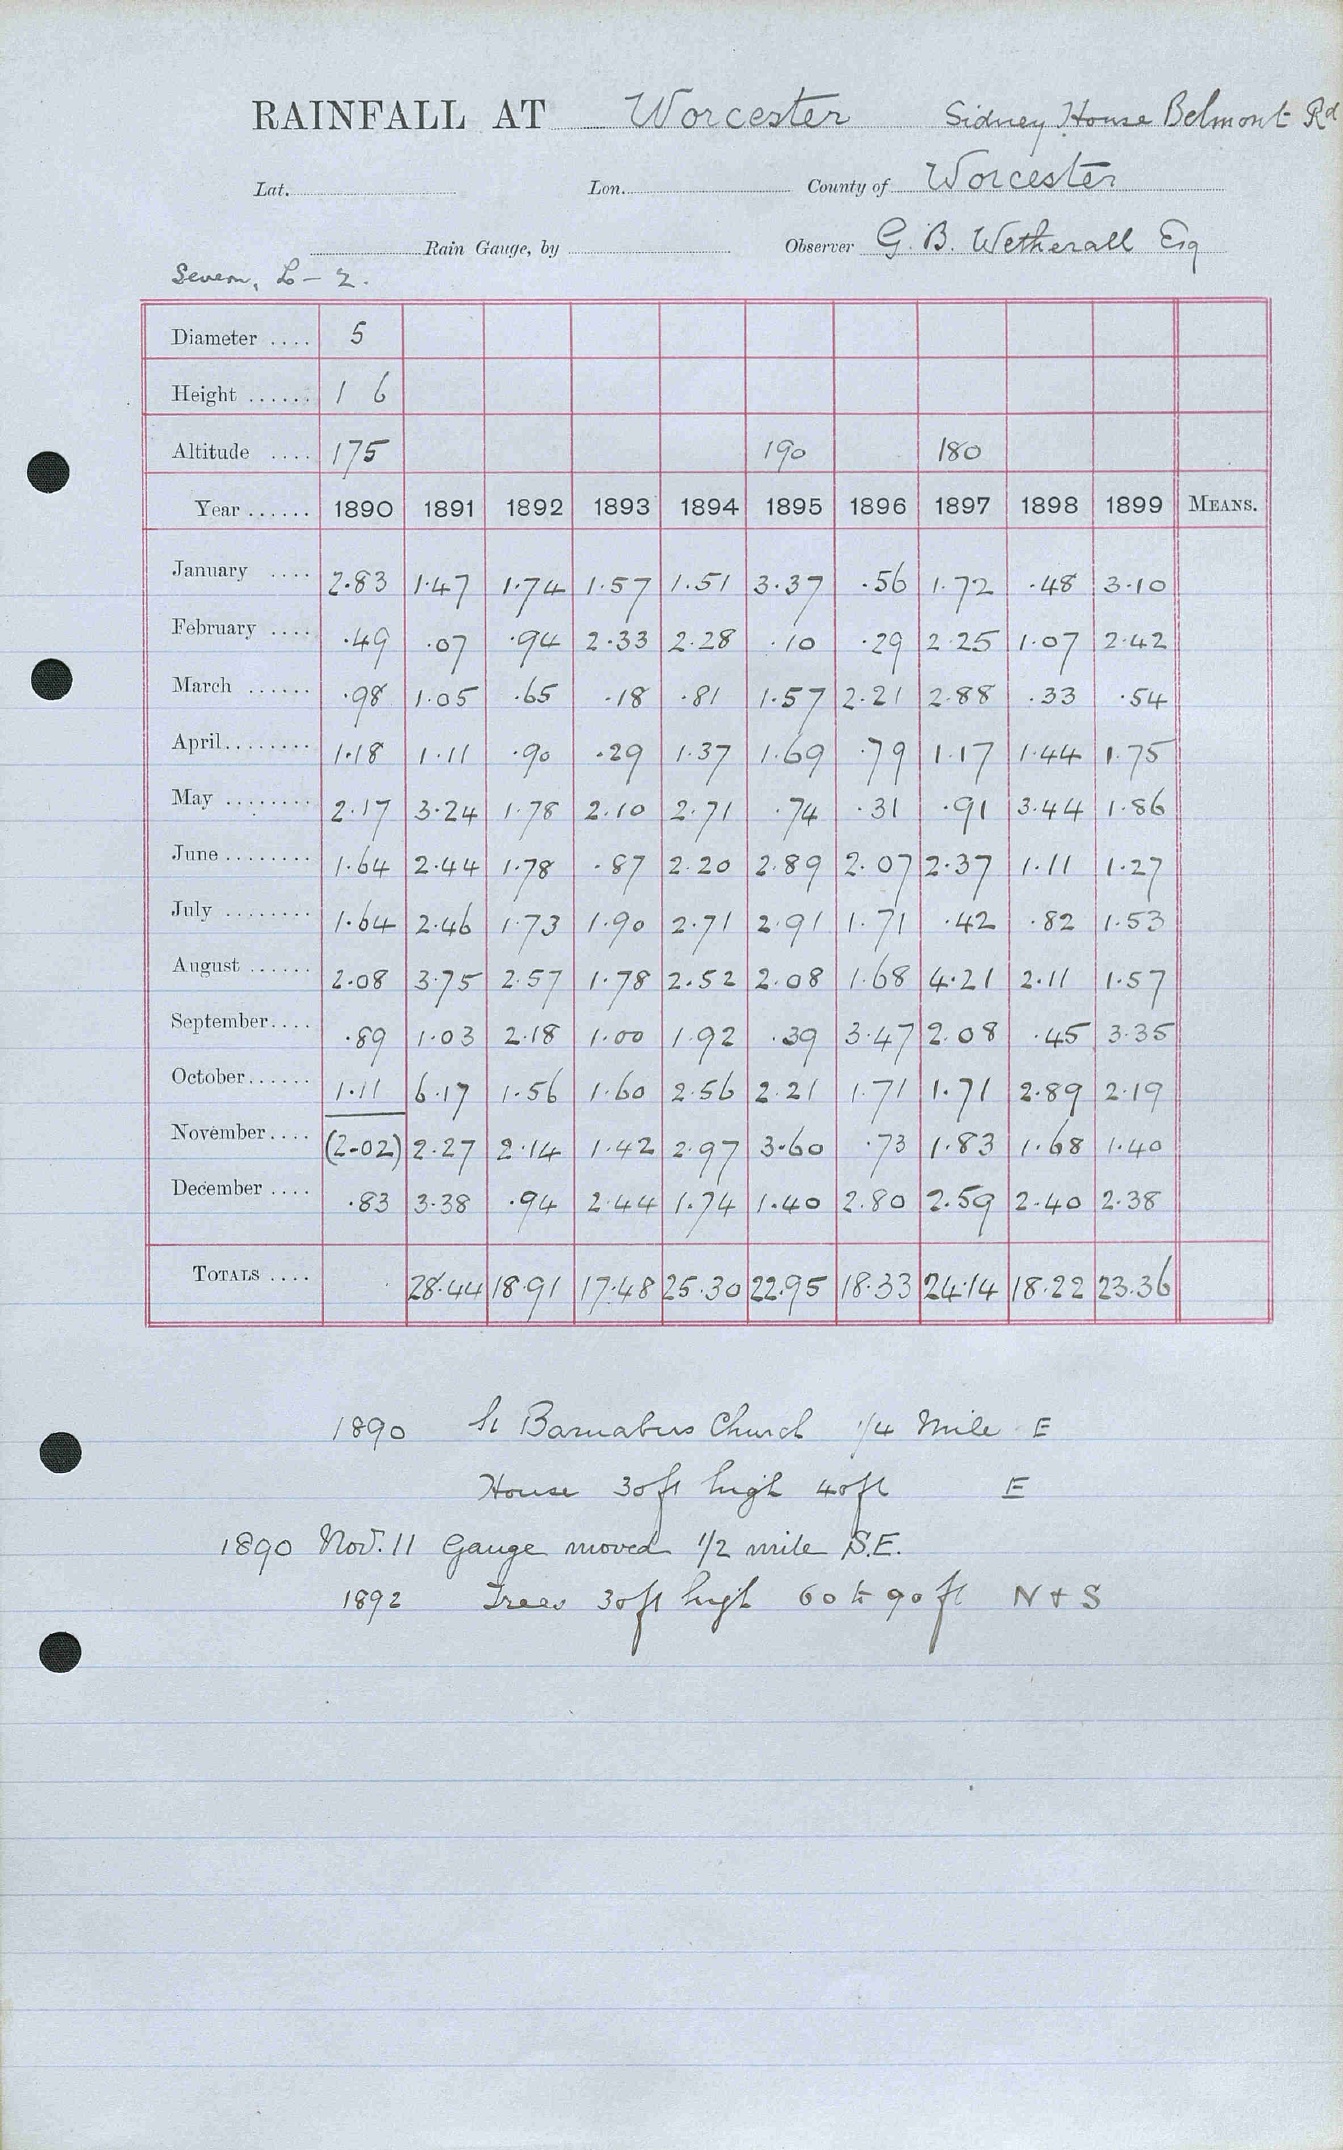 RAINFALL AT Worcester Sidney House Belmont Rd
Lat. Lon. County of Worcester
Rain Gauge, by Observer G. B. Wetherall Esq
Severn, L - 2.
Diameter .... 5
Height ...... 1 6
Altitude .... 175 190 180
Year ...... 1890 1891 1892 1893 1894 1895 1896 1897 1898 1899 MEANS.
January .... 2.83 1.47 1.74 1.57 1.51 3.37 .56 1.72 .48 3.10
February .... .49 .07 .94 2.33 2.28 .10 .29 2.25 1.07 2.42
March ...... .98 1.05 .65 .18 .81 1.57 2.21 2.88 .33 .54
April........ 1.18 1.11 .90 .29 1.37 1.69 .79 1.17 1.44 1.75
May ........ 2.17 3.24 1.78 2.10 2.71 .74 .31 .91 3.44 1.86
June........ 1.64 2.44 1.78 .87 2.20 2.89 2.07 2.37 1.11 1.27
July ........ 1.64 2.46 1.73 1.90 2.71 2.91 1.71 .42 .82 1.53
August ...... 2.08 3.75 2.57 1.78 2.52 2.08 1.68 4.21 2.11 1.57
September.... .89 1.03 2.18 1.00 1.92 .39 3.47 2.08 .45 3.35
October...... 1.11 6.17 1.56 1.60 2.56 2.21 1.71 1.71 2.89 2.19
November.... (2.02) 2.27 2.14 1.42 2.97 3.60 .73 1.83 1.68 1.40
December .... .83 3.38 .94 2.44 1.74 1.40 2.80 2.59 2.40 2.38
TOTALS .... 28.44 18.91 17.48 25.30 22.95 18.33 24.14 18.22 23.36
1890 St Barnabus Church 1/4 Mile E
House 30ft high 40ft E
1890 Nov. 11 Gauge moved 1/2 mile S.E.
1892 Trees 30ft high 60 to 90 ft N + S